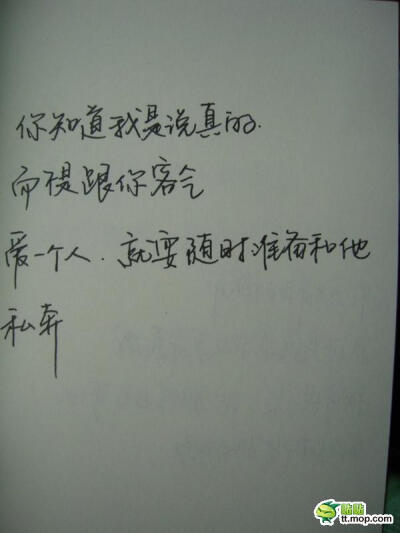 你知道我是说真的.
而不是跟你客气
爱一个人.就要随时准备和他
私奔
贴贴
tt.mop.com